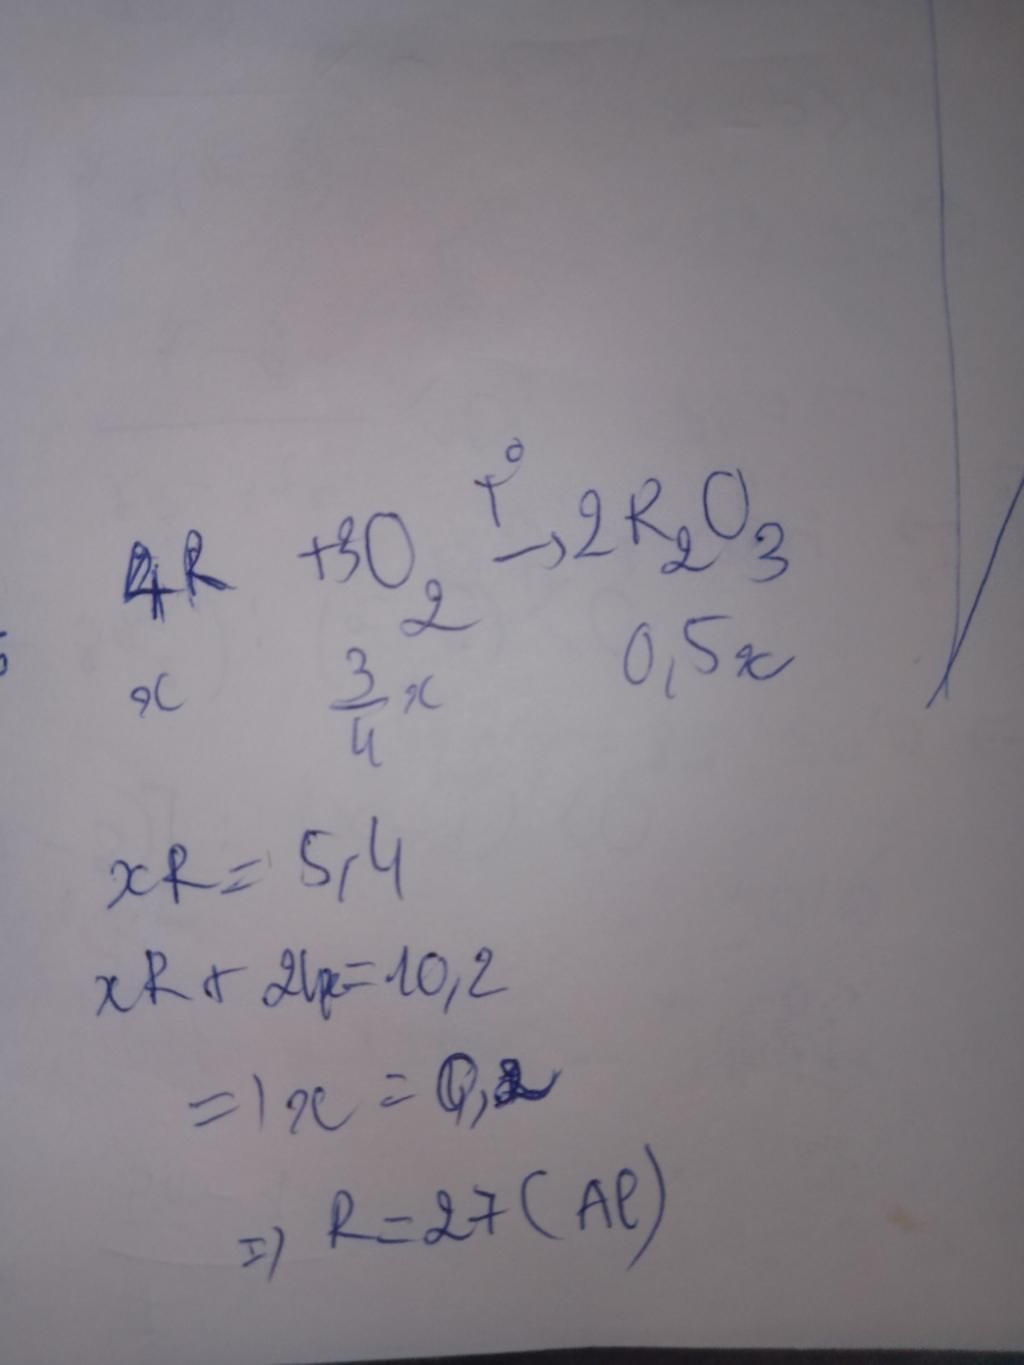 4R + 3O₂ →t° 2R₂O₃
x 3/4 x 0,5x
xR = 5,4
xR + 24x = 10,2
=) x = 0,2
=) R = 27 (Al)